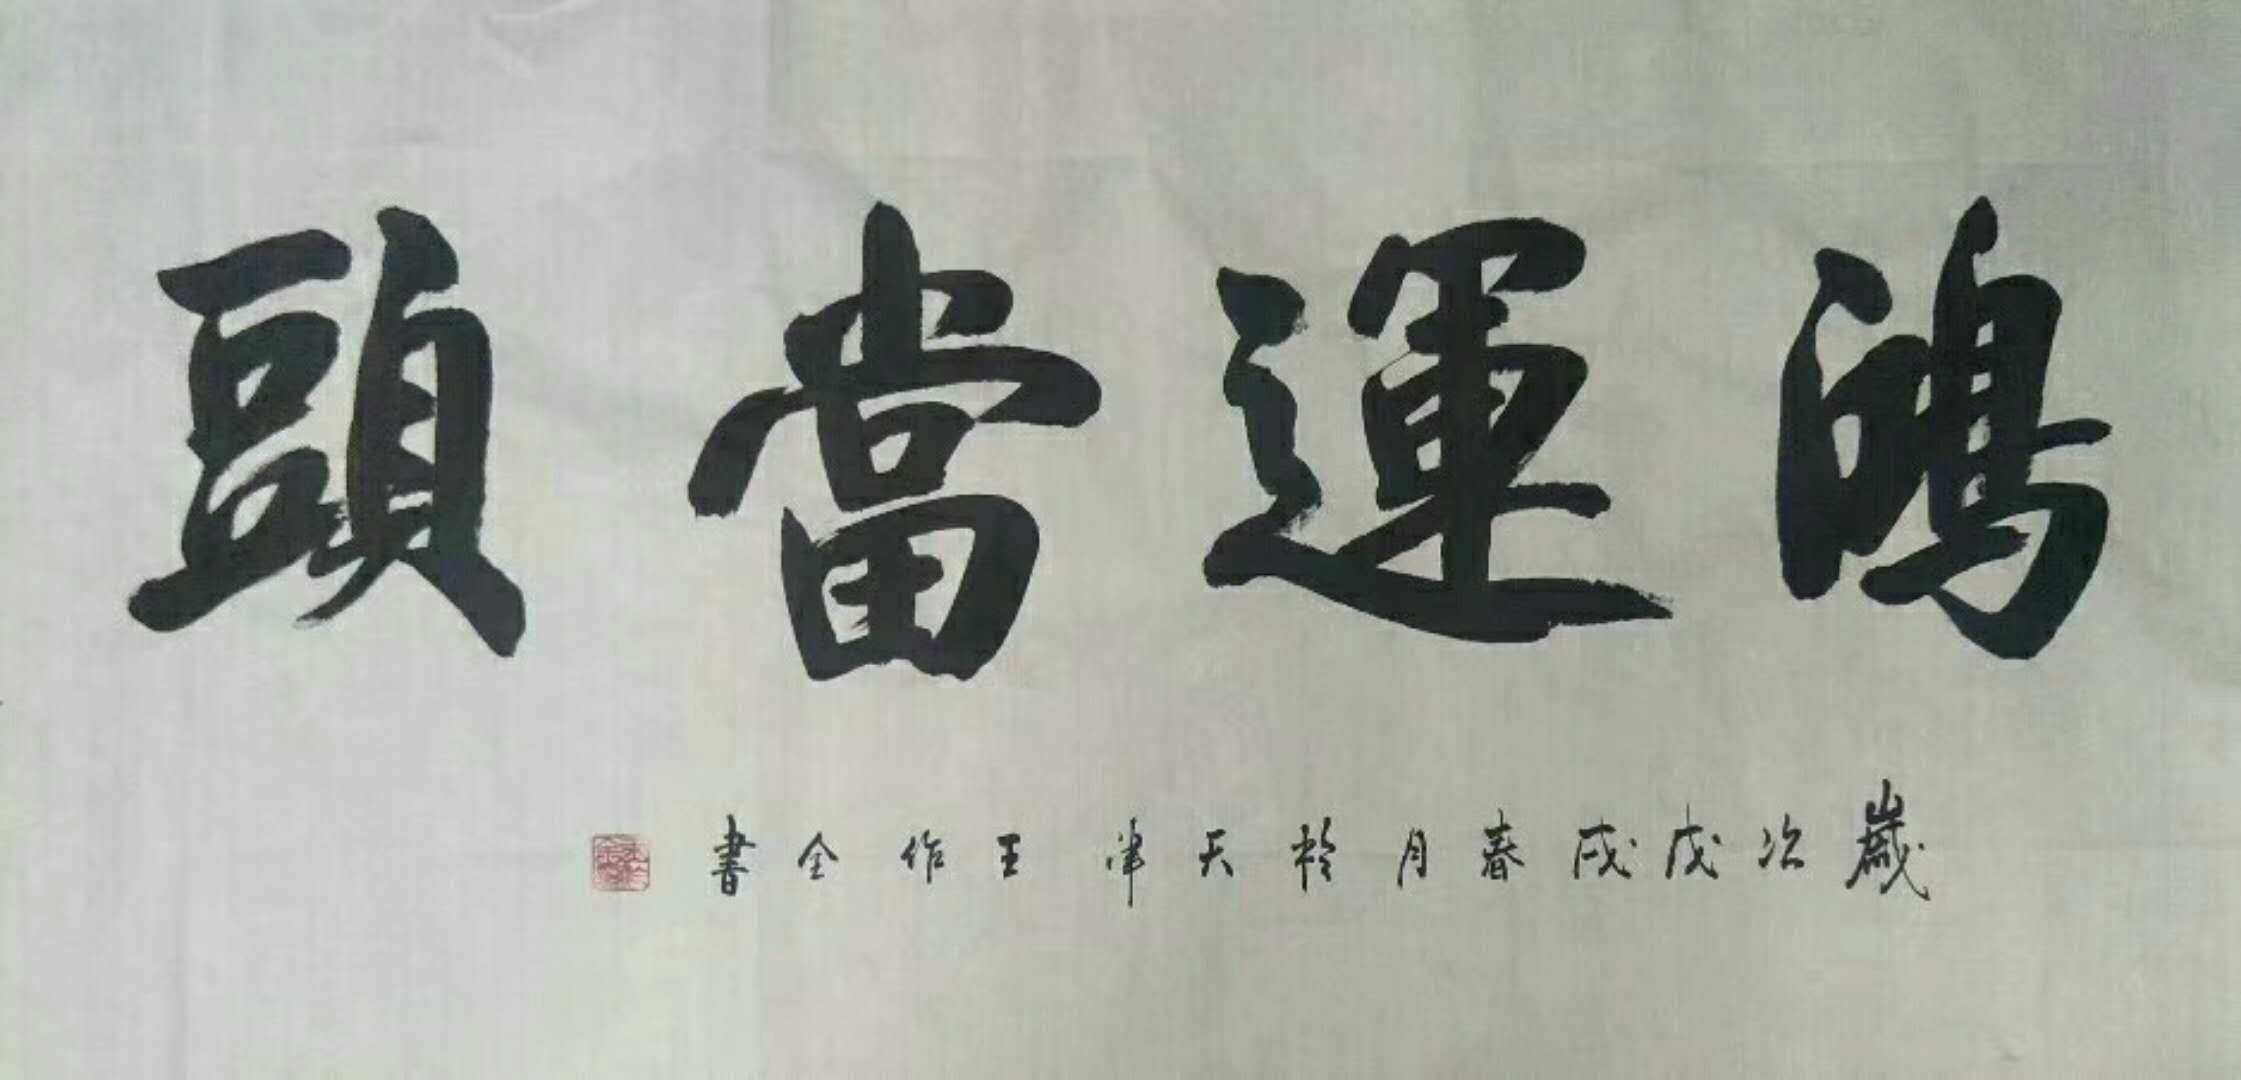 鴻運當頭
歲次戊戌春月於天津王作全書